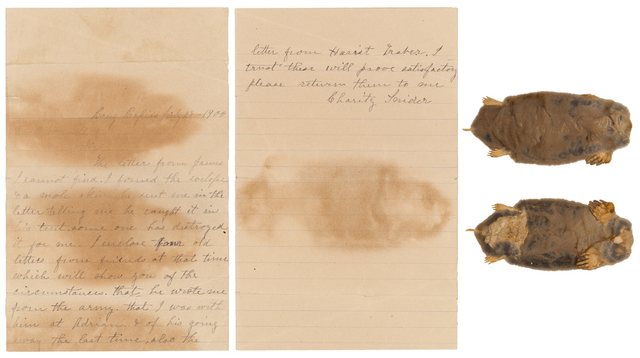 Long Rapids July 10 1900
The letter from James
I cannot find. I found the envelope
& a mole skin he sent me in the
letter telling me he caught it in
his tent some one has destroyed
it for me. I enclose four old
letters from friends at that time
which will show you of the
circumstances. that he wrote me
from the army. that I was with
him at Adrian & of his going
away the last time, also the
letter from Harist Traber. I
trust these will prove satisfactory
please return them to me
Charity Snider